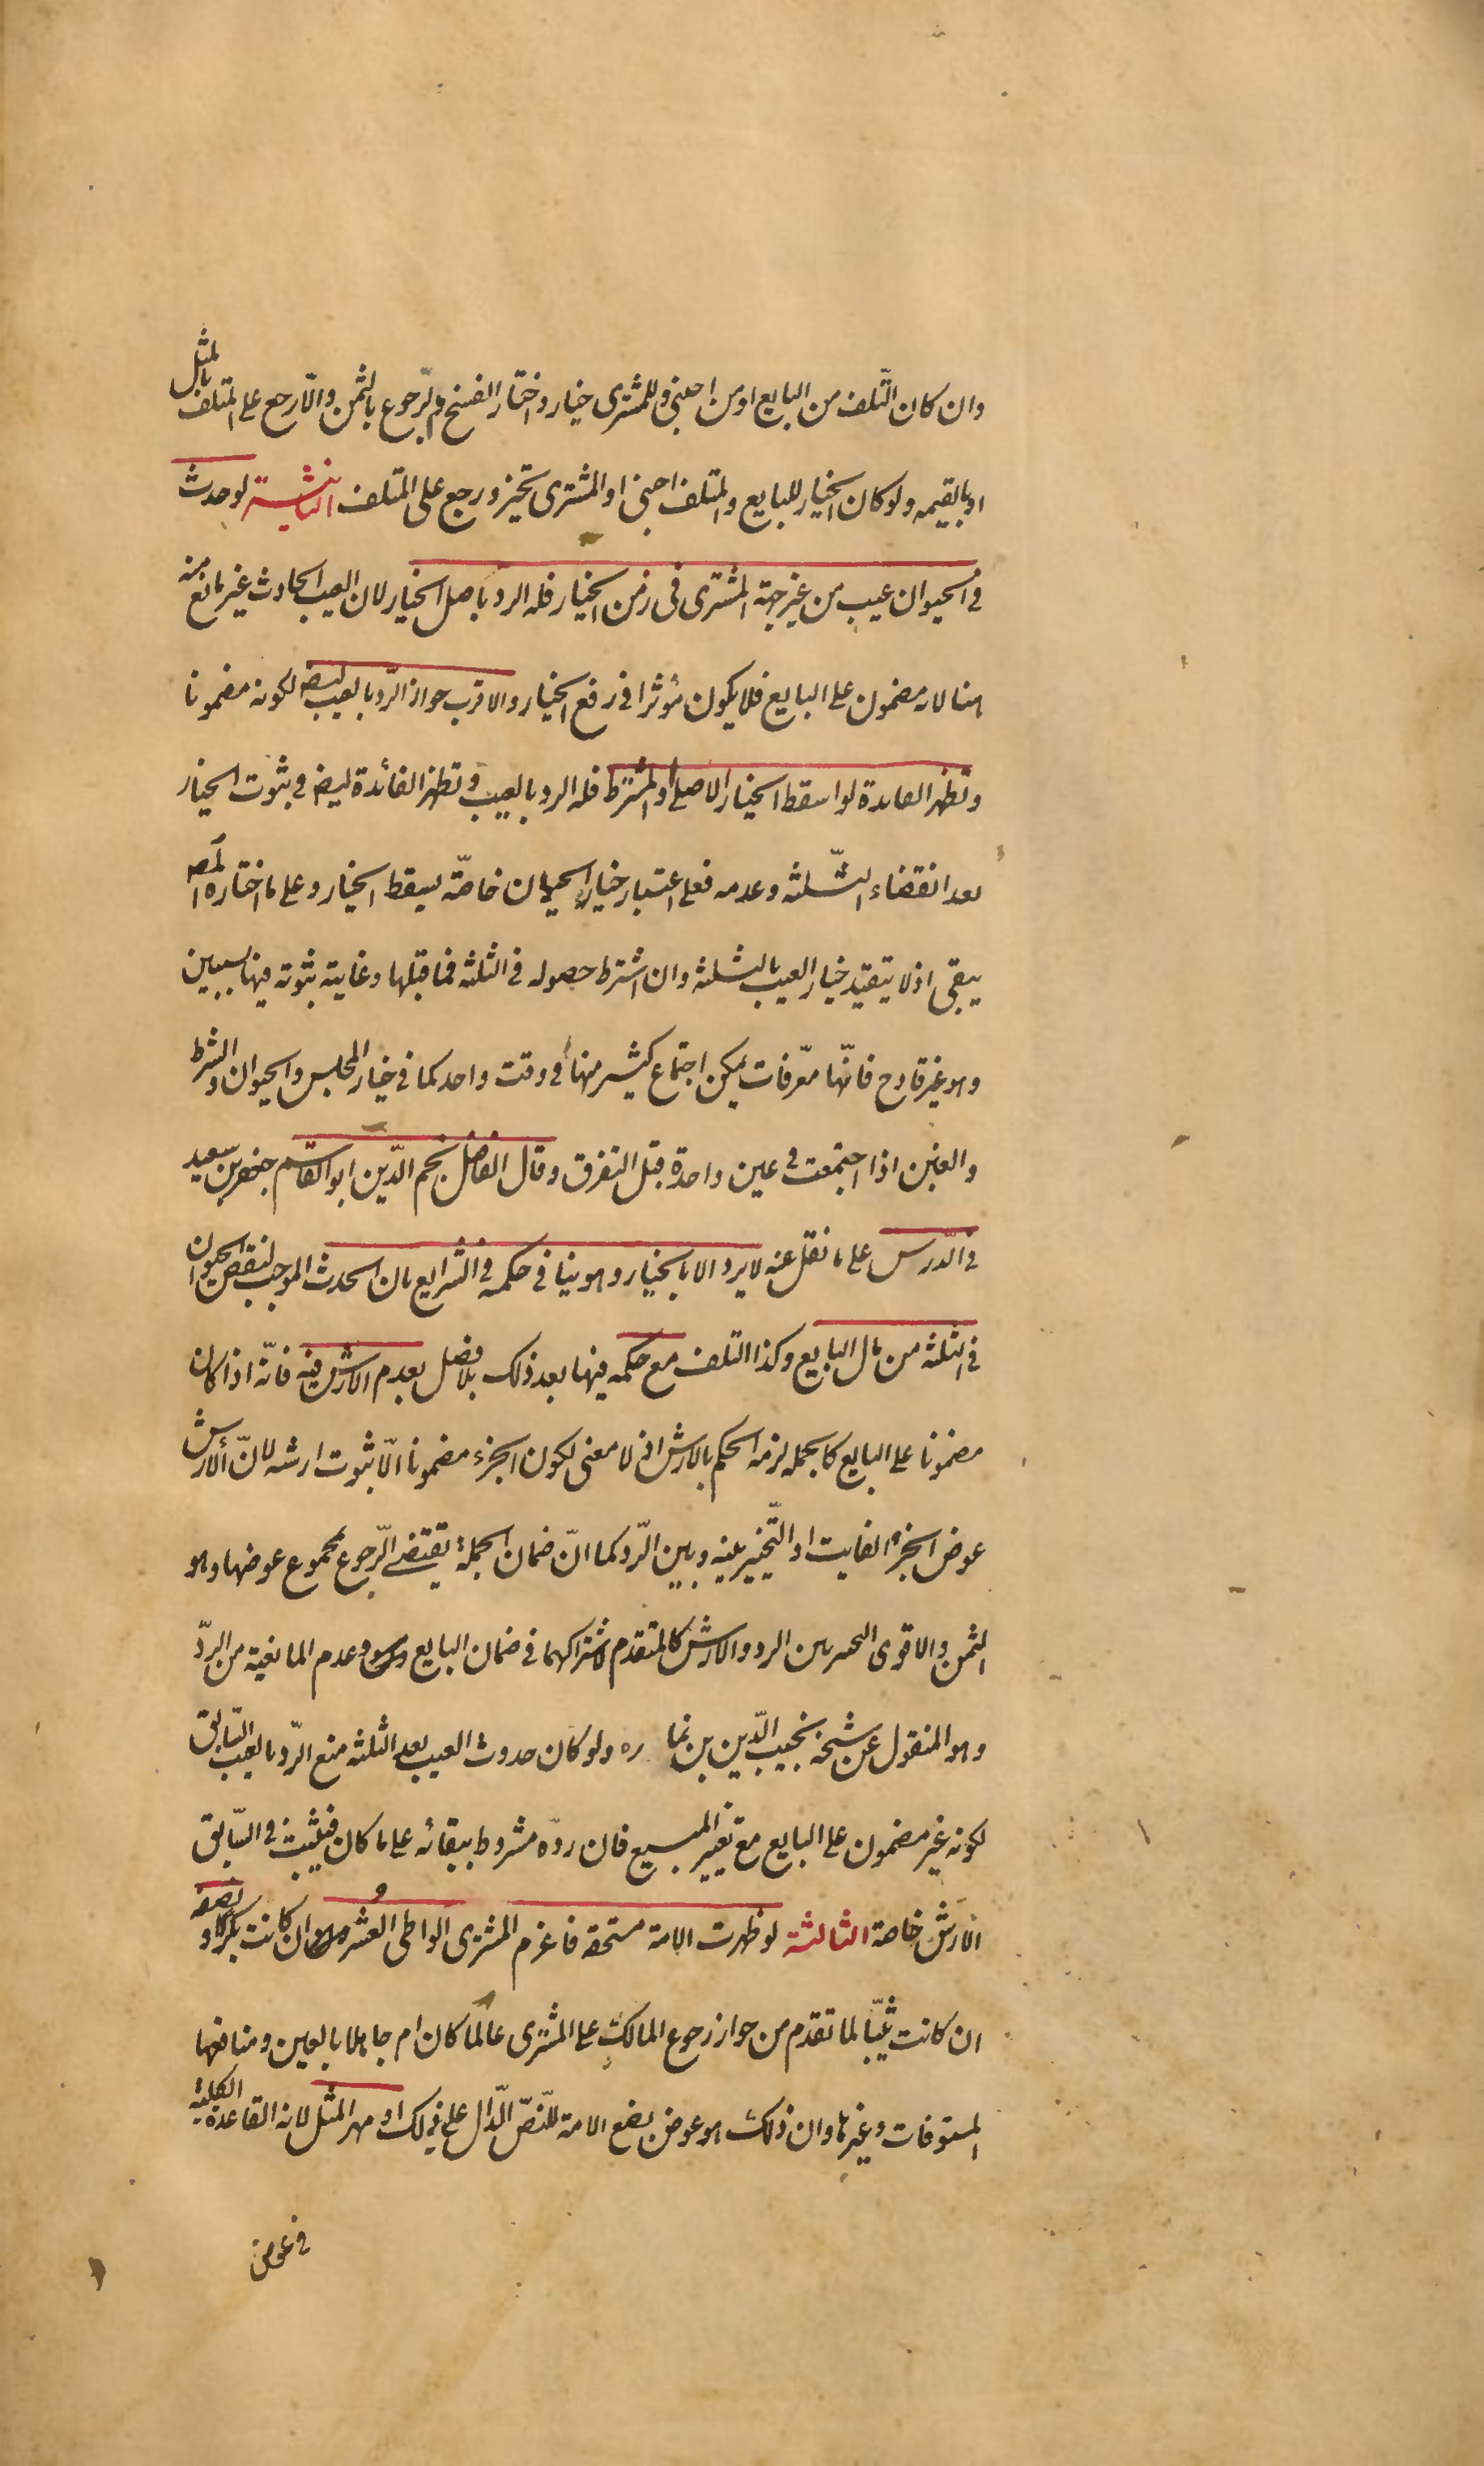 وان كان التّلف من البايع او من اجنبى وللمشترى خيار واختار الفسخ والرّجوع بالثمن والّا رجع على المتلف بالمثل
او بالقيمه ولو كان الخيار للبايع والمتلف اجنبى او المشترى تخيّر ورجع على المتلف الثانية لو حدث
فى الحيوان عيب من غير جهة المشترى فى زمن الخيار فله الرد باصل الخيار لان العيب الحادث غير مانع منه
هنا لانه مضمون على البايع فلا يكون مؤثرا فى رفع الخيار والاقرب جواز الرّد بالعيب ايضا لكونه مضمونا
وتظهر الفايدة لو اسقط الخيار الاصلى او المشترط فله الرد بالعيب وتظهر الفائدة ايض فى ثبوت الخيار
بعد انقضاء الثّلثه وعدمه فعلى اعتبار خيار الحيوان خاصّة يسقط الخيار وعلى ما اختاره المص
يبقى اذ لا يتقيد خيار العيب بالثلثه وان اشترط حصوله فى الثلثه فما قبلها وغايته ثبوته فيها بسببين
وهو غير قادح فانّها معّرفات يمكن اجتماع كثير منها فى وقت واحد كما فى خيار المجلس والحيوان والشرط
والغبن اذا اجتمعت فى عين واحدة قبل التفرق وقال الفاضل نجم الدّين ابو القاسم جعفر بن سعيد
فى الدّرس على ما نقل عنه لا يرد الا بالخيار وهو ينافى حكمه فى الشرايع بان الحدث الموجب لنقص الحيوان
فى الثلثه من مال البايع وكذا التلف مع حكمه فيها بعد ذلك بلا فصل بعدم الارش فيه فانّه اذا كان
مضمونا على البايع كالجمله لزمه الحكم بالارش اذ لا معنى لكون الجزء مضمونا الّا ثبوت ارشه لانّ الارش
عوض الجزء الفايت او التّخيير بينه وبين الرّد كما انّ ضمان الجملة يقتضى الرّجوع بمجموع عوضها وهو
الثمن والاقوى التخيير بين الرد والارش كالمتقدم لاشتراكهما فى ضمان البايع وعدم المانعية من الردّ
وهو المنقول عن شيخه نجيب الدّين بن نما ره ولو كان حدوث العيب بعد الثلثه منع الرّد بالعيب السّابق
لكونه غير مضمون على البايع مع تغيير المبيع فان ردّه مشروط ببقائه على ما كان فيثبت فى السّابق
الارش خاصة الثالثة لو ظهرت الامة مستحقه فاغرم المشترى الواطى العُشر ان كانت بكرا او نصفه
ان كانت ثيّبا لما تقدم من جواز رجوع المالك على المشترى عالما كان ام جاهلا بالعين ومنافعها
المستوفات وغيرها وان ذلك هو عوض بضع الامة للنّص الّدال على ذلك او مهر المثل لانه القاعدة الكلية
فى عوض